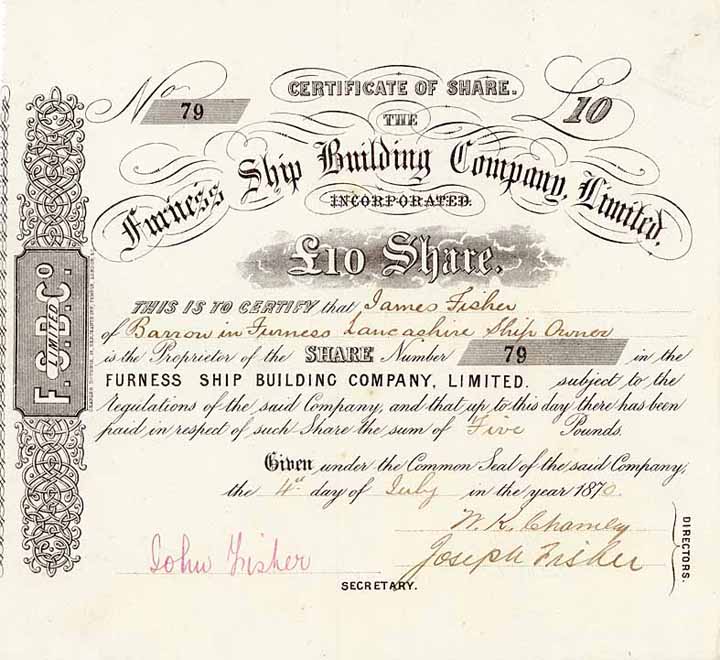 No 79
CERTIFICATE OF SHARE.
£10
THE
Furness Ship Building Company, Limited.
INCORPORATED.
£10 Share.
THIS IS TO CERTIFY that James Fisher
of Barrow in Furness Lancashire Ship Owner
is the Proprietor of the SHARE Number 79 in the
FURNESS SHIP BUILDING COMPANY, LIMITED. subject to the
regulations of the said Company, and that up to this day there has been
paid in respect of such Share the sum of Five Pounds.
Given under the Common Seal of the said Company,
the 4th day of July in the year 1870.
W. K. Chamley
Joseph Fisher
DIRECTORS.
John Fisher
SECRETARY.
F. S. B. Co.
LIMITED